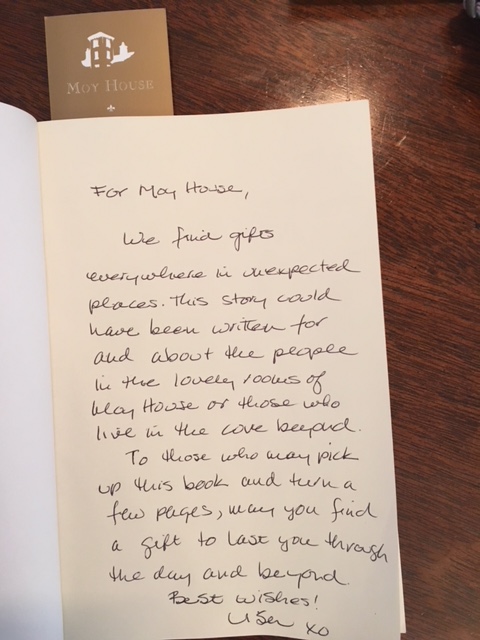 MOY HOUSE
For Moy House,
We find gifts
everywhere in unexpected
places. This story could
have been written for
and about the people
in the lovely rooms of
Moy House or those who
live in the cove beyond.
To those who may pick
up this book and turn a
few pages, may you find
a gift to last you through
the day and beyond.
Best wishes!
xo